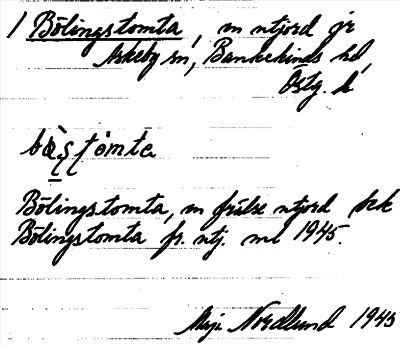 1 Bölingstomta, m utjord jr
Askeby sn, Bankekinds hd,
Östg. l.
Bölingstomta, m frälse utjord
Bölingstomta fr. utj. ml 1945.
Maja Nordlund 1945